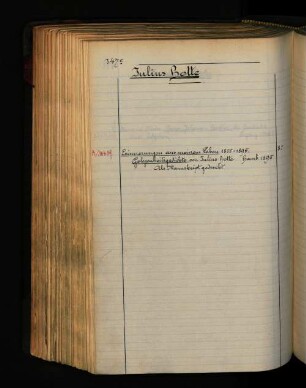 Julius Botte
Erinnerungen aus meinem Leben 1855-1895.
Gelegenheitsgedichte von Julius Botte Hamb 1895
Als Manuskript gedruckt
8°